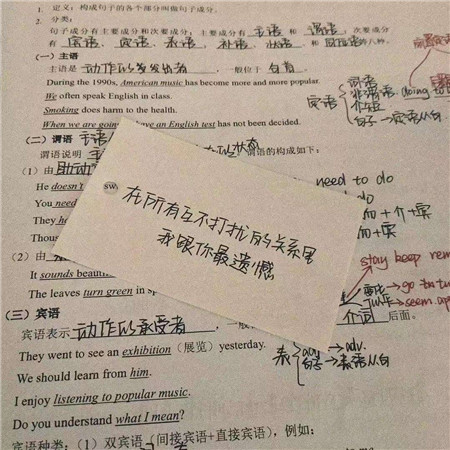 1. 定义：构成句子的各个部分叫做句子成分。
2. 分类：
句子成分有主要成分和次要成分；主要成分有 主语 和 谓语；次要成分
有 宾语、定语、表语、补语、状语 和 同位语 的八种。
(一) 主语
主语是 动作的发出者 一般位于 句首。
During the 1990s, American music has become more and more popular.
We often speak English in class.
Smoking does harm to the health.
When we are going have an English test has not been decided.
(二) 谓语
谓语说明 主 状态 谓语的构成如下：
(1) 由 助动
He doesn't need to do
You need do
They h 而+介+宾
Thous 而+宾
(2) 由
It sounds beauti
The leaves turn green in sp
stay keep rem
变化→go tu tu
seem ap
定语
词语
非谓语 doing to
介短
句子→定语从句
SW
在所有互不打扰的关系里
我跟你最遗憾
(三) 宾语
宾语表示 动作的承受者 一般 介词 后面。
They went to see an exhibition (展览) yesterday.
表 adv. → adv.
句子→表语从句
We should learn from him.
I enjoy listening to popular music.
Do you understand what I mean?
宾语种类：(1) 双宾语（间接宾语+直接宾语），例如：